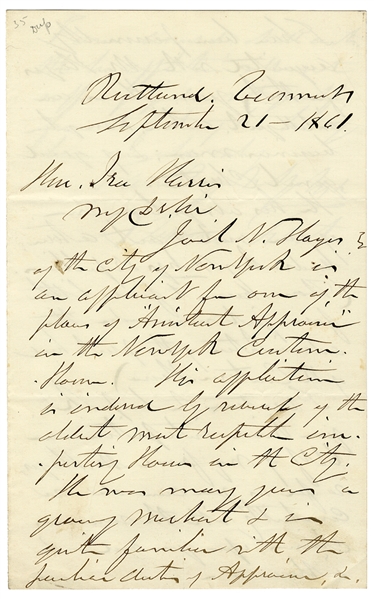 35 Dup
Rutland, Vermont
September 21 - 1861.
Hon. Ira Harris
My D. Sir.
N. Hayes
of the City of New York is
an applicant for one of the
places of Assistant Appraiser
in the New York Custom
House. His application
is indorsed by several of the
oldest most respectable im-
porting Houses in the City.
He was many years a
grocery merchant & is
quite familiar with the
peculiar duties of Appraiser, &c.